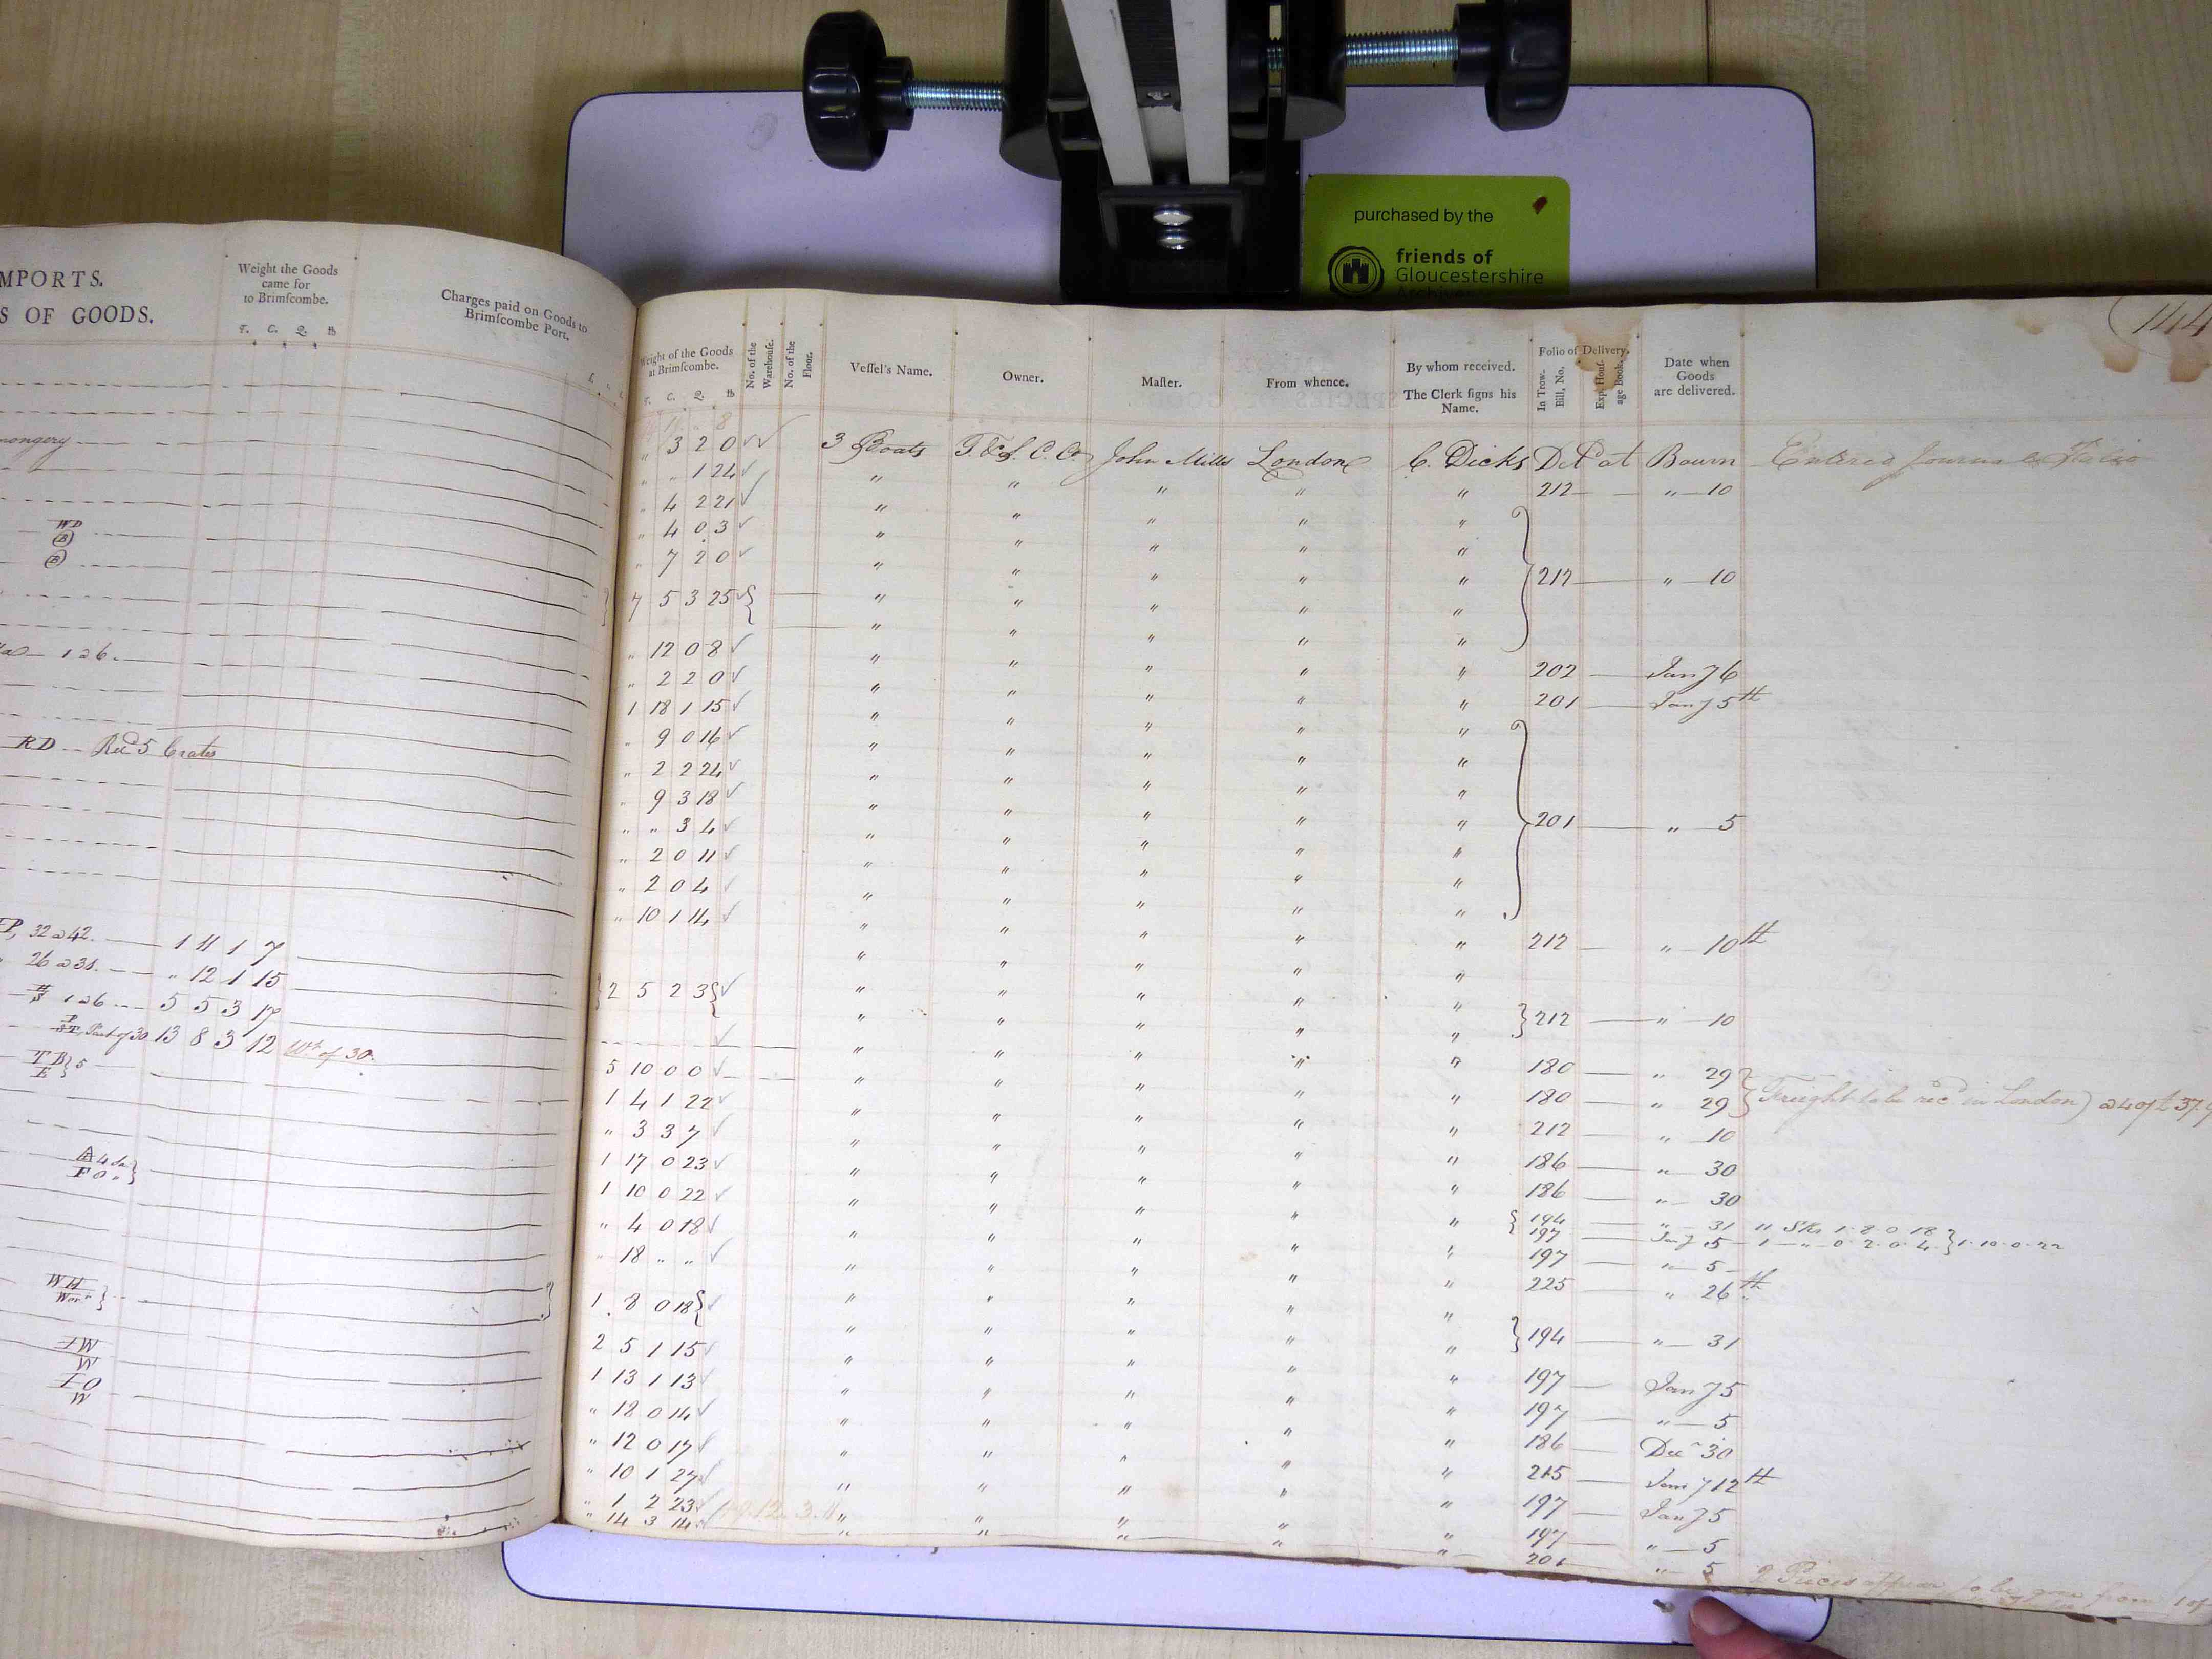 purchased by the
friends of
Gloucestershire
MPORTS.
S OF GOODS.
Weight the Goods
came for
to Brimſcombe.
T. C. Q. lb
Charges paid on Goods to
Brimſcombe Port.
mongery
WD
(B)
(B)
1 a 6.
RD -- Recd 5 Crates
P, 32 a 42. 1 11 1 7
" 26 a 31. " 12 1 15
1 a 6 5 5 3 17
Part of 30 13 8 3 12 Wt of 30.
TB } 5
E
4
FO " }
WH
IW
W
IO
W
144
Weight of the Goods
at Brimſcombe.
T. C. Q. lb
No. of the
Warehouſe.
No. of the
Floor.
Veſſel's Name.
Owner.
Maſter.
From whence.
By whom received.
The Clerk ſigns his
Name.
Folio of Delivery.
In Trow-
Bill, No.
Date when
Goods
are delivered.
" 3 2 0 3 Boats T. & S. C. Co John Mills London C. Dicks Del at Bourn Entered Journal
" " 1 24 " " " " " 212 " 10
" 4 2 21 " " " " "
" 4 0 3 " " " " "
" 7 2 0 " " " " " 212 " 10
7 5 3 25 " " " " "
" " " " "
" 12 0 8 " " " " " 202 Jany 6
" 2 2 0 " " " " " 201 Jany 5th
1 18 1 15 " " " " "
" 9 0 16 " " " " "
" 2 2 24 " " " " "
" 9 3 18 " " " " " 201 " 5
" " 3 4 " " " " "
" 2 0 11 " " " " "
" 2 0 4 " " " " "
" 10 1 14 " " " " " 212 " 10th
" " " " "
2 5 2 3 " " " " " 212 " 10
" " " " "
5 10 0 0 " " " " " 180 " 29
1 4 1 22 " " " " " 180 " 29 Freight to be recd in London
" 3 3 7 " " " " " 212 " 10
1 17 0 23 " " " " " 186 " 30
1 10 0 22 " " " " " 186 " 30
" 4 0 18 " " " " " 194 " 31 11 Sks 1. 8. 0. 18
197 Jany 5 1 " 0. 2. 0. 4 } 1. 10. 0. 22
" 18 " " " " " " " 197 " 5
225 " 26th
1 8 0 18 " " " " "
2 5 1 15 " " " " " 194 " 31
1 13 1 13 " " " " " 197 Jany 5
" 18 0 14 " " " " " 197 " 5
" 12 0 17 " " " " " 186 Decr 30
" 10 1 27 " " " " " 215 Jany 12th
" 1 2 23 " " " " " 197 Jany 5
" 14 3 14 " " " " " 197 " 5
201 " 5